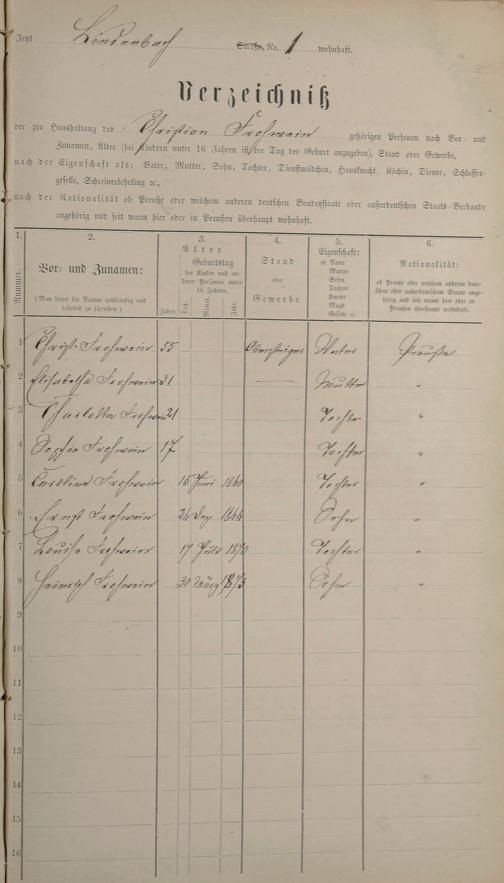 Jetzt Lindenbach Straße, No. 1 wohnhaft.
Verzeichniß
der zur Haushaltung des Christian Frohwein gehörigen Personen nach Vor- und
Zunamen, Alter (bei Kindern unter 16 Jahren ist der Tag der Geburt anzugeben), Stand oder Gewerbe,
nach der Eigenschaft als: Vater, Mutter, Sohn, Tochter, Dienstmädchen, Hausknecht, Köchin, Diener, Schlosser-
geselle, Schreinerlehrling ꝛc.
nach der Nationalität ob Preuße oder welchem anderen deutschen Bundesstaate oder außerdeutschen Staats-Verbande
angehörig und seit wann hier oder in Preußen überhaupt wohnhaft.
1. 2. 3. 4. 5. 6.
Nummer. Vor- und Zunamen: Alter Stand oder Gewerbe. Eigenschaft: Nationalität:
(Man bittet die Namen vollständig und leserlich zu schreiben.)
Jahre. Geburtstag der Kinder und anderer Personen unter 16 Jahren.
Tag. Monat. Jahr.
ob Vater Mutter Sohn Tochter Knecht Magd Geselle ꝛc.
ob Preuße oder welchem anderen deutschen oder außerdeutschem Staate angehörig und seit wann hier oder in Preußen überhaupt wohnhaft.
1 Christ. Frohwein 55 Obersteiger Vater Preuße
2 Elisabetha Frohwein 31 — Mutter "
3 Charlotta Frohwein 21 Tochter "
4 Sophie Frohwein 17 Tochter "
5 Caroline Frohwein 15 Juni Tochter "
6 Ernst Frohwein 24 Dez. 1866 Sohn "
7 Louise Frohwein 17 Julii 1870 Tochter "
8 Heinrich Frohwein 30 März 1873 Sohn "
9
10
11
12
13
14
15
16